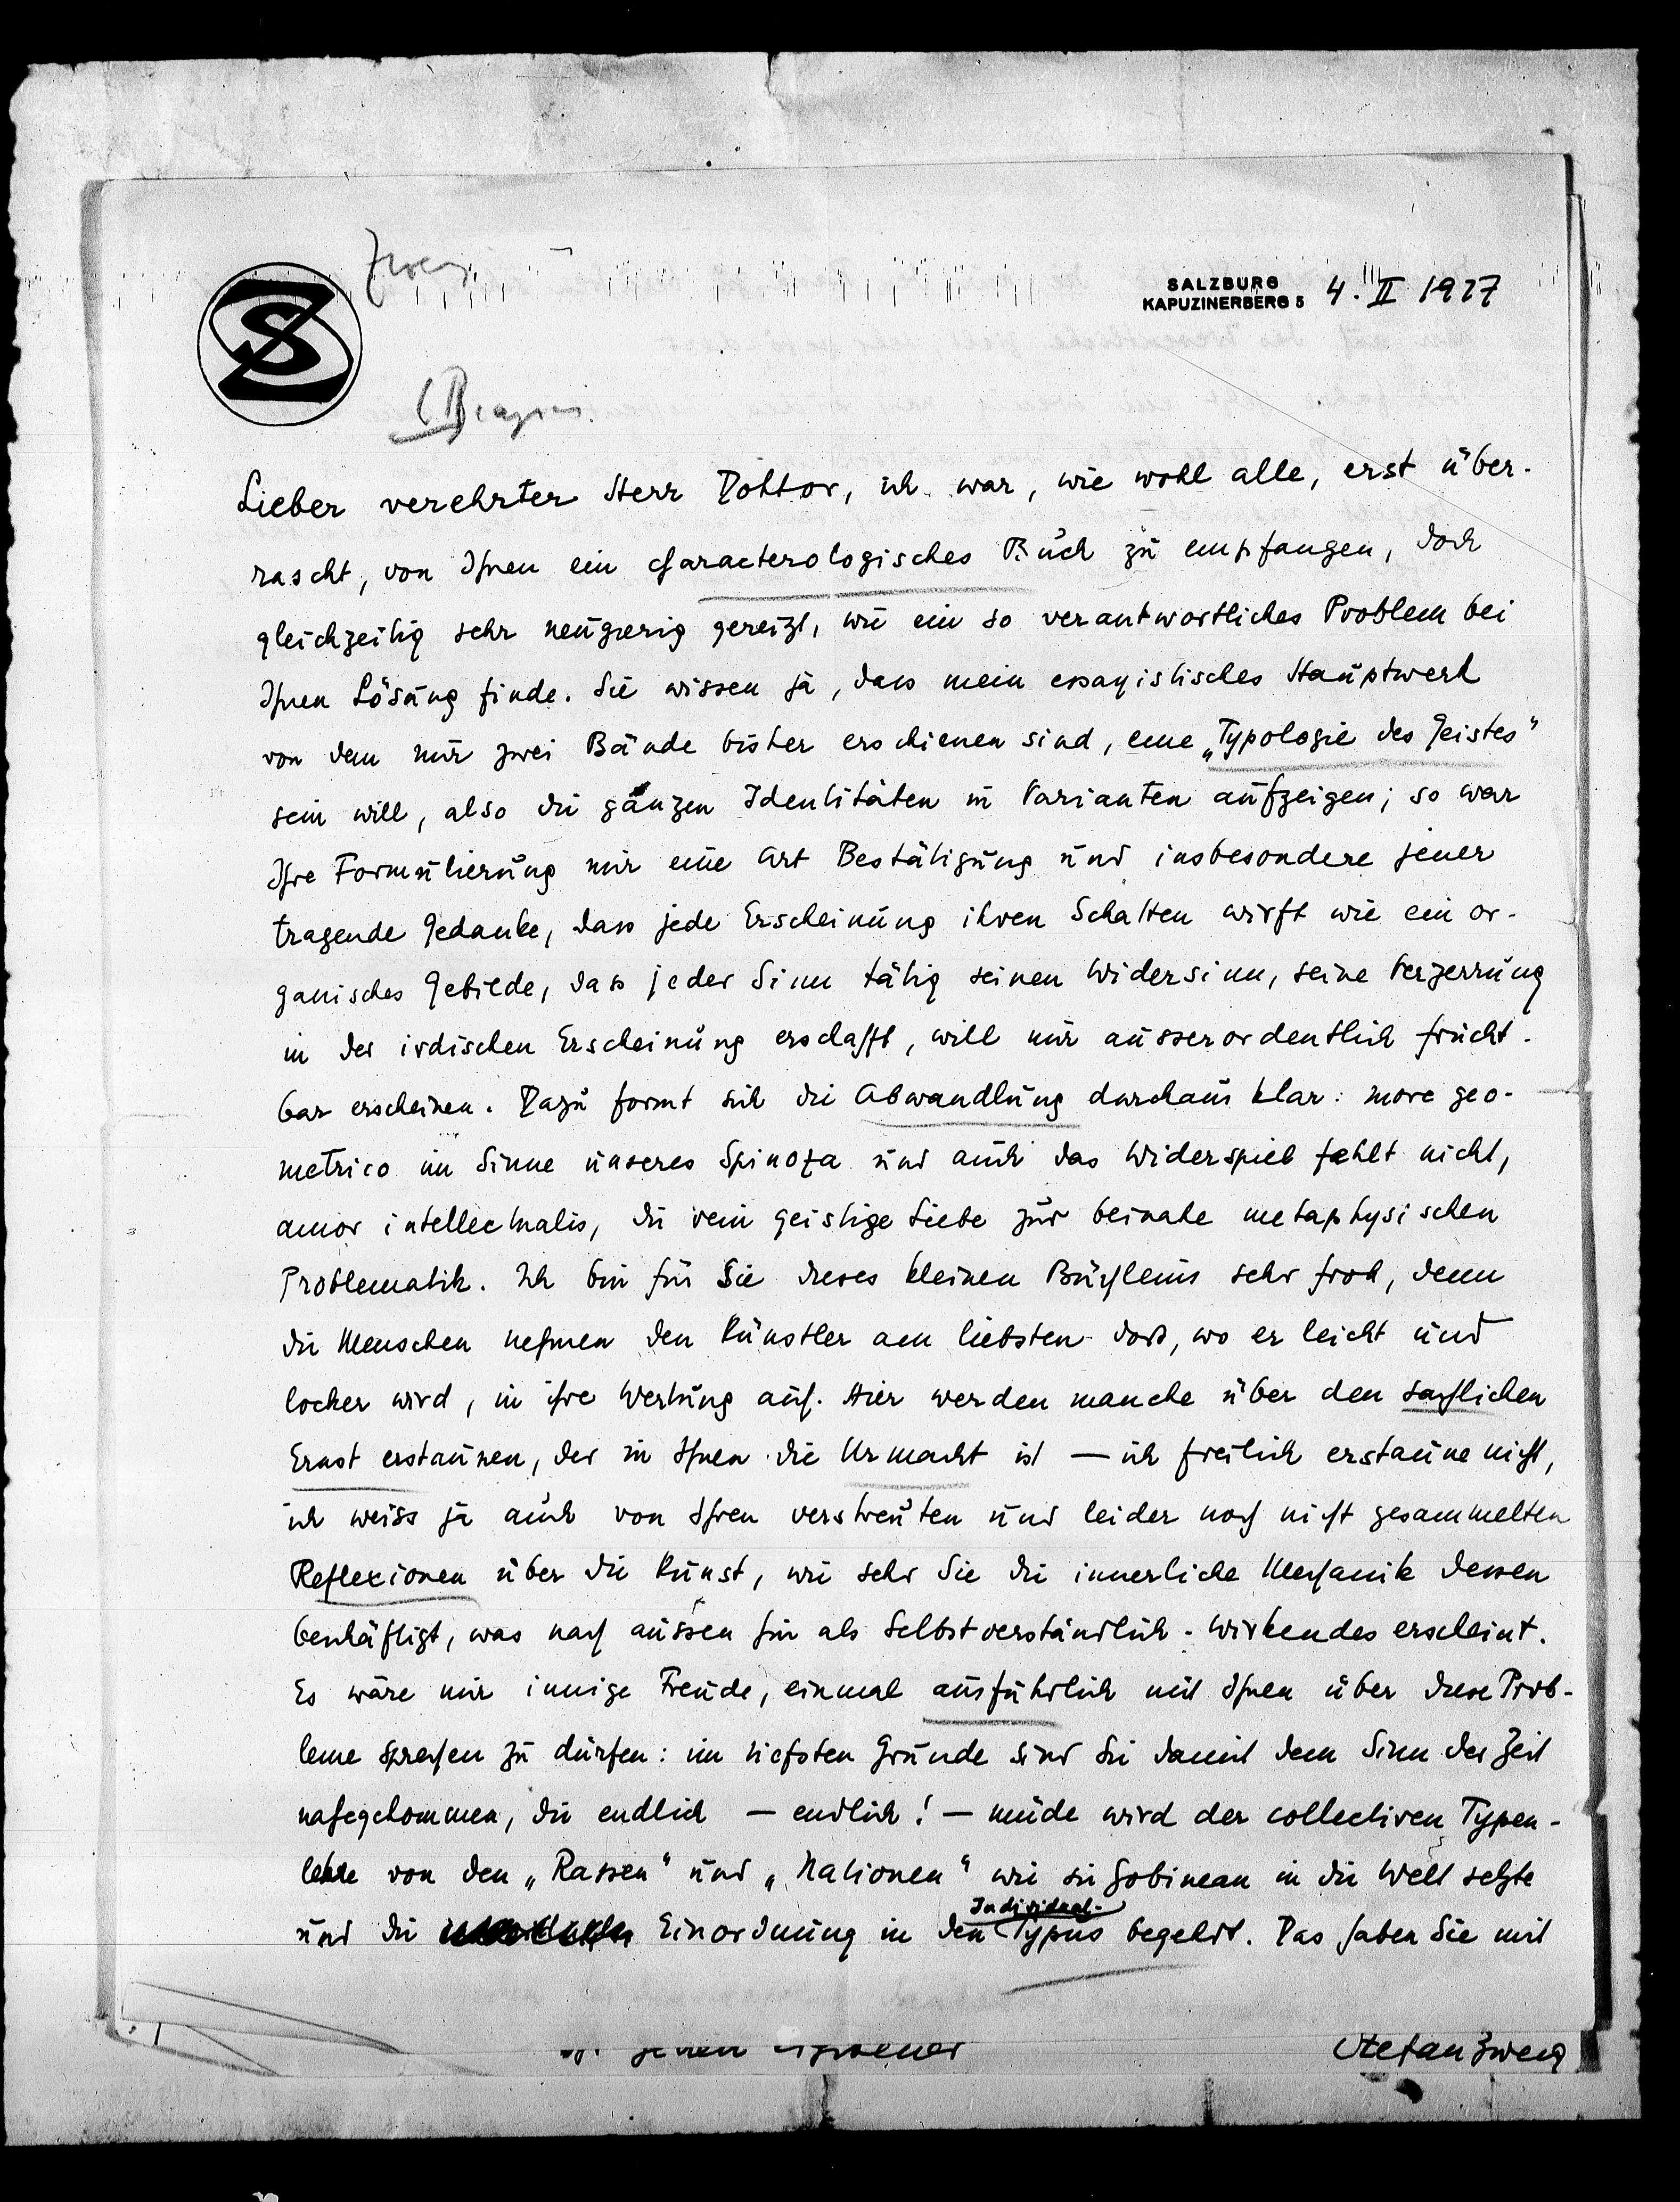 Zweig
SALZBURG
KAPUZINERBERG 5 4. II 1927
SZ
Lieber verehrter Herr Doktor, ich war, wie wohl alle, erst über-
rascht, von Ihnen ein characterologisches Buch zu empfangen, doch
gleichzeitig sehr neugierig gereizt, wie ein so verantwortliches Problem bei
Ihnen Lösung finde. Sie wissen ja, dass mein essayistisches Hauptwerk
von dem nur zwei Bände bisher erschienen sind, eine „Typologie des Geistes"
sein will, also die ganzen Identitäten in Varianten aufzeigen; so war
Ihre Formulierung mir eine Art Bestätigung und insbesondere jener
tragende Gedanke, dass jede Erscheinung ihren Schatten wirft wie ein or-
ganisches Gebilde, dass jeder Sinn tätig seinen Widersinn, seine Verzerrung
in der irdischen Erscheinung erschafft, will mir ausserordentlich frucht-
bar erscheinen. Dazu formt sich die Abwandlung durchaus klar: more geo-
metrico im Sinne unseres Spinoza und auch das Widerspiel fehlt nicht,
amor intellectualis, die rein geistige Liebe zur beinahe metaphysischen
Problematik. Ich bin für Sie dieses kleinen Büchleins sehr froh, denn
die Menschen nehmen den Künstler am liebsten dort, wo er leicht und
locker wird, in ihre Wertung auf. Hier werden manche über den sachlichen
Ernst erstaunen, der in Ihnen die Urmacht ist — ich freilich erstaune nicht,
ich weiss ja auch von Ihren verstreuten und leider noch nicht gesammelten
Reflexionen über die Kunst, wie sehr Sie die innerliche Mechanik dessen
beschäftigt, was nach aussen hin als Selbstverständlich-Wirkendes erscheint.
Es wäre mir innige Freude, einmal ausführlich mit Ihnen über diese Prob-
leme sprechen zu dürfen: im tiefsten Grunde sind Sie damit dem Sinn der Zeit
nahegekommen, die endlich — endlich! — müde wird der collectiven Typen-
lehre von den „Rassen" und „Nationen" wie sie Gobineau in die Welt setzte
und die Einordnung in den Individual-Typus begehrt. Das haben Sie mit
Stefan Zweig